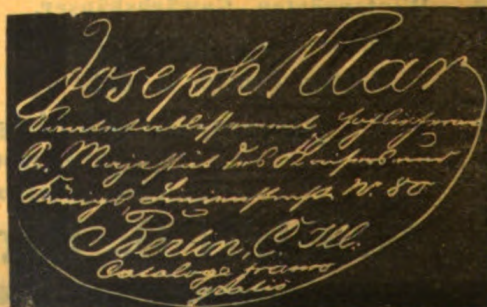 Joseph Klar
Saatetablissement Hoflieferant
Sr. Majestät des Kaisers und
Königs, Linienstrasse N. 80
Berlin, C. Ill.
Cataloge franco
gratis